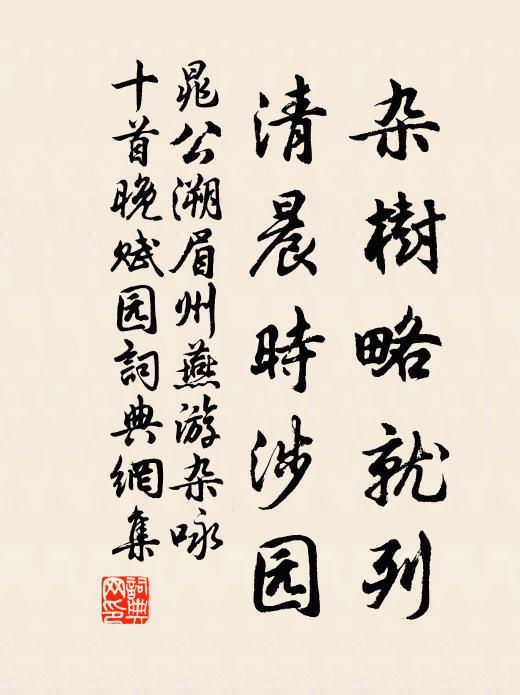 杂樹略就列
清晨時涉园
晁公溯眉州燕游杂咏
十首晚赋园詞典網集